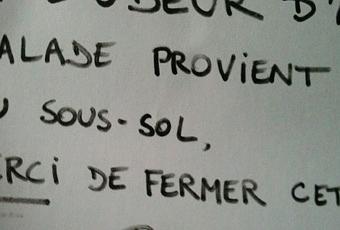 ODEUR D'
ALADE PROVIENT
U SOUS-SOL,
ERCI DE FERMER CET